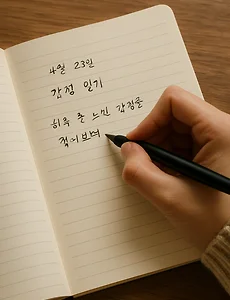 4월 23일
감정 일기
하루 중 느낀 감정을
적어보며